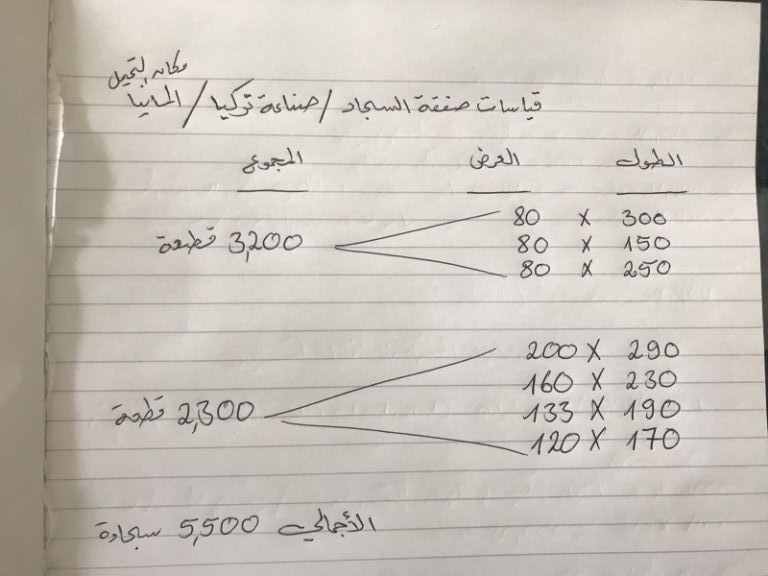 مكان التحميل
قياسات صفقة السجاد / صناعة تركيا / المانيا
الطول العرض المجموع
300 X 80
150 X 80 3,200 قطعة
250 X 80
290 X 200
230 X 160
190 X 133 2,300 قطعة
170 X 120
الأجمالي 5,500 سجادة